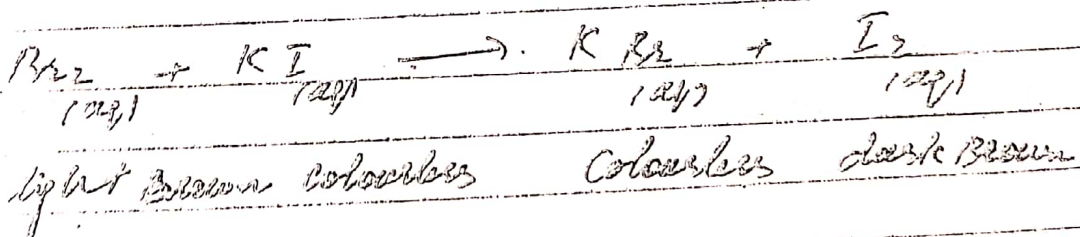 Br2 + KI ⟶ KBr + I2
(aq) (aq) (aq) (aq)
light Brown colourless Colourless dark Brown